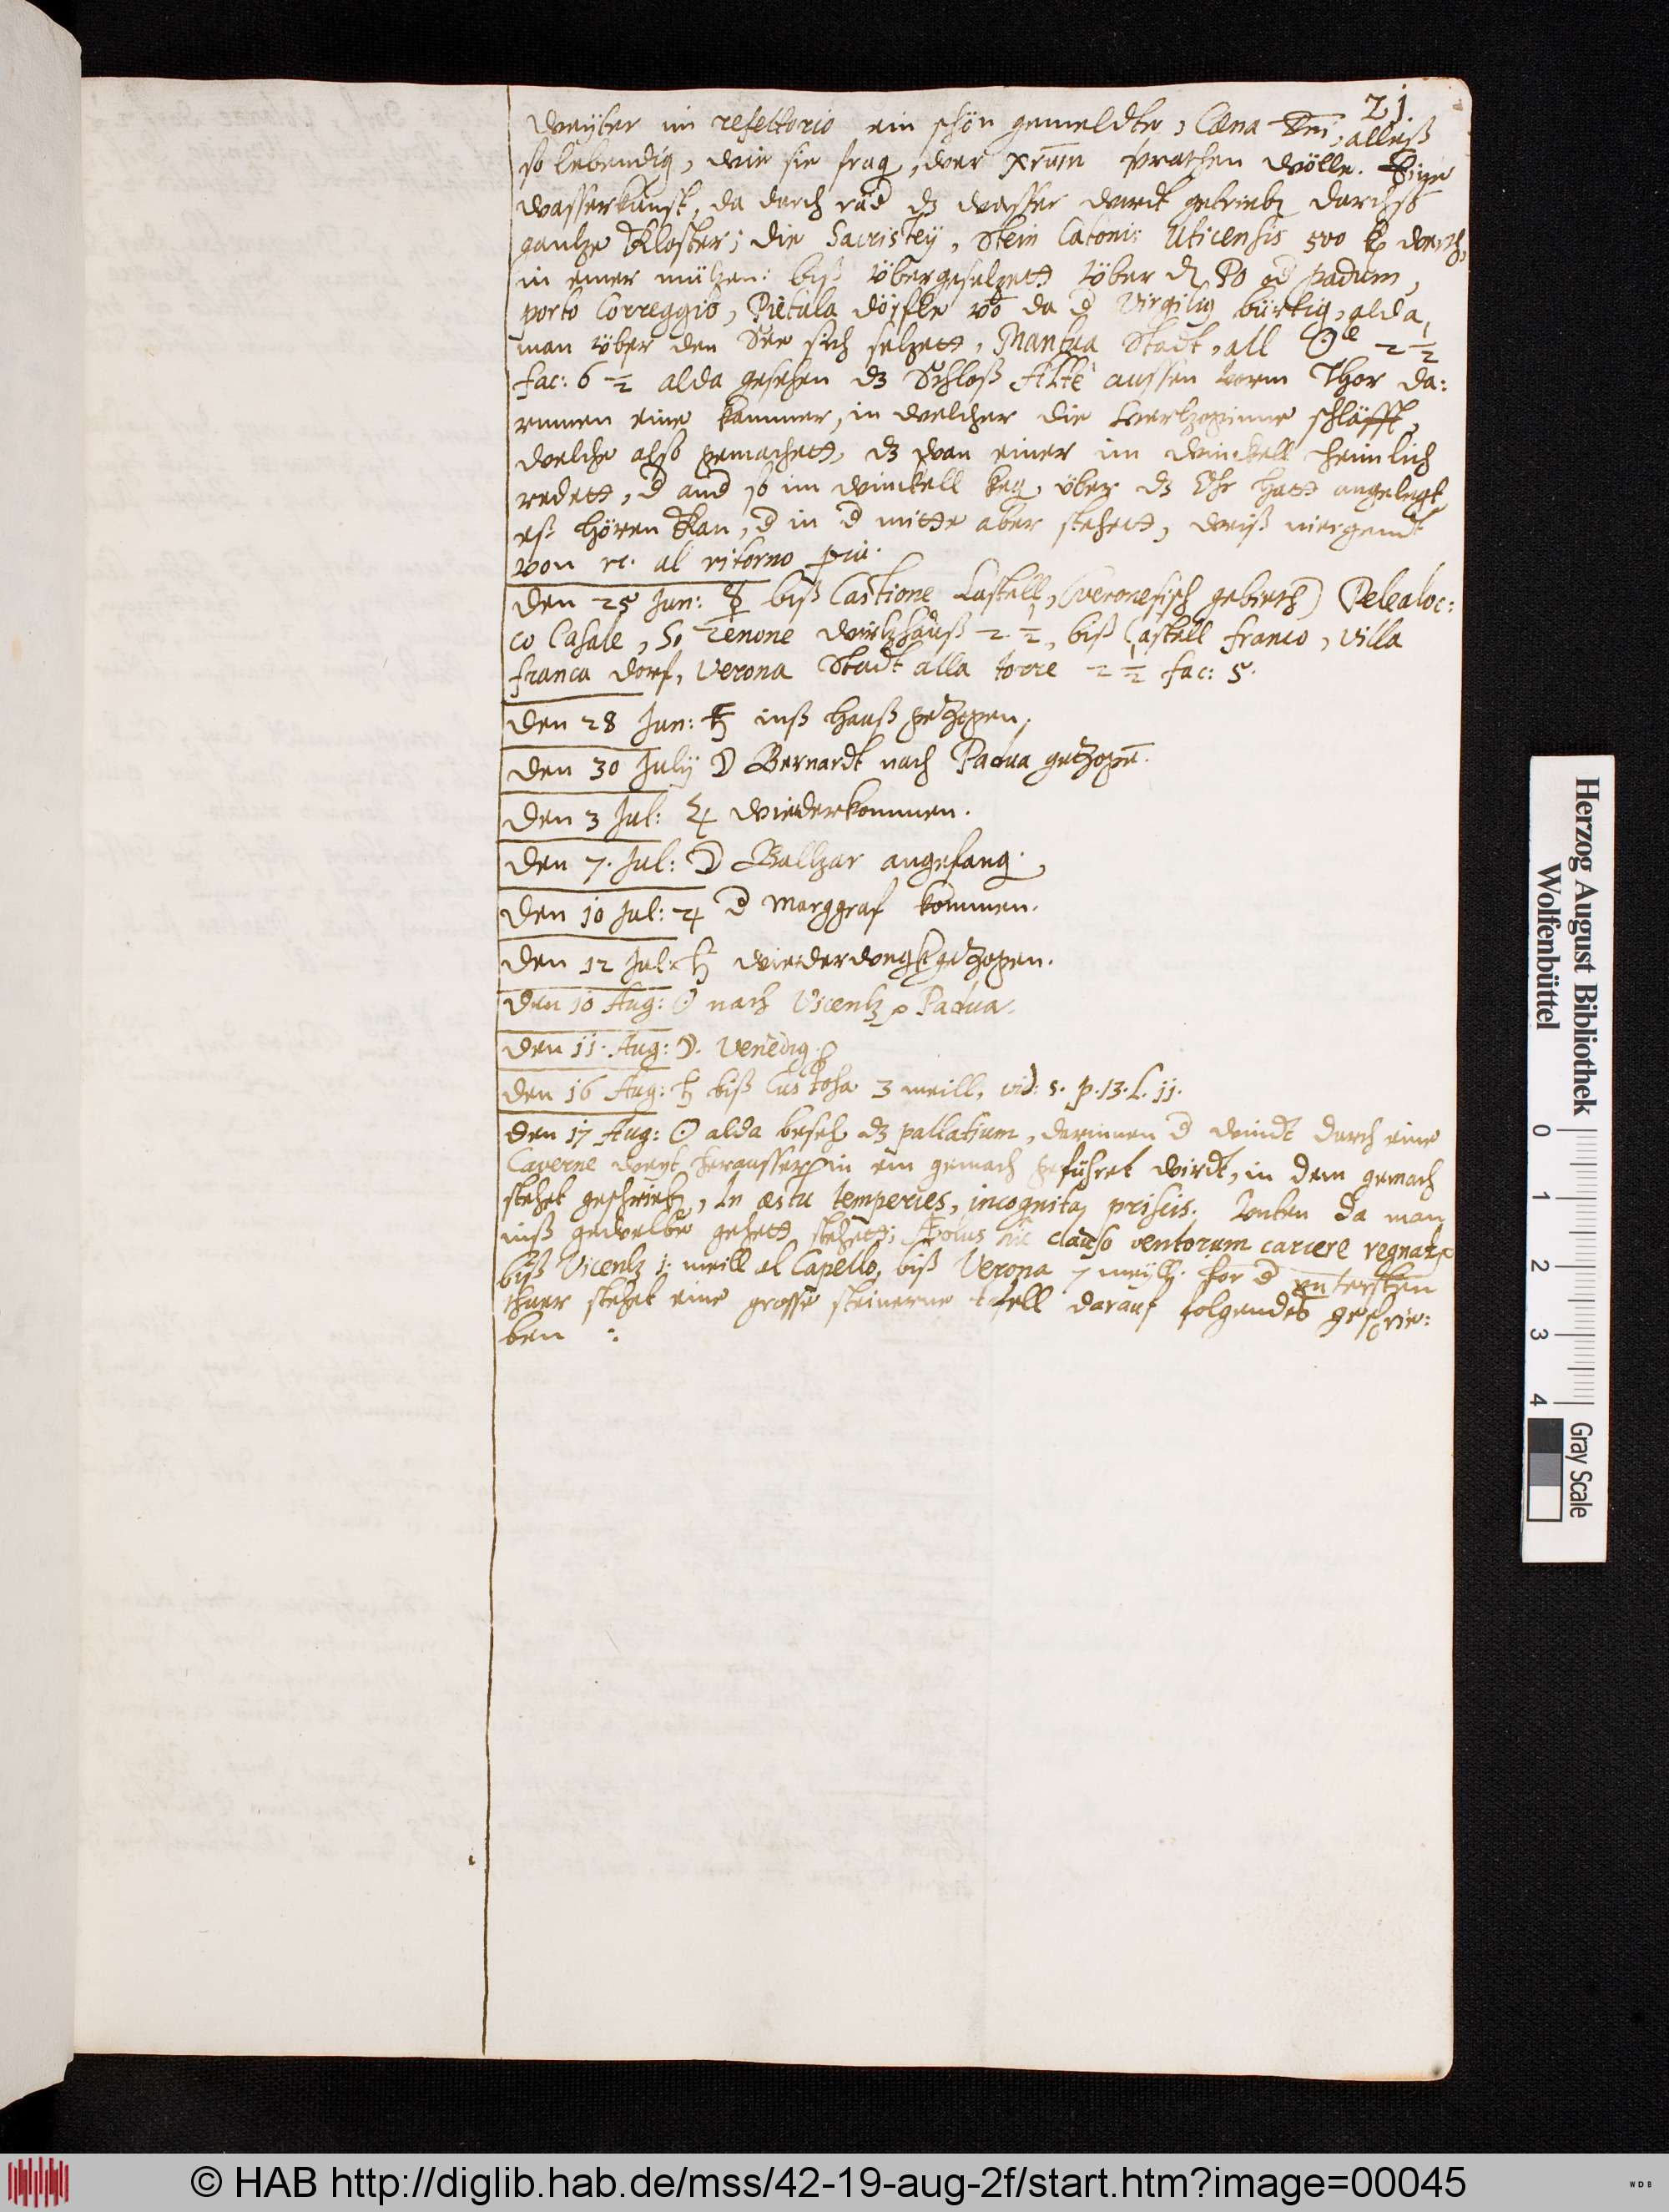 21.
weyter im refettorio ein schön gemeldte, Cæna Dni, alleß
so lebendig, wie sie frag, wer xrum prathen wölle. Eine
wasserkunst, da durch räd dz wasser wirdt getrieb durchß
gantze Kloster; die Sacristey, Stein Catonis Uticensis 500 werth,
in einer mützen: biß übergesetzett über d Po od padum,
porto Correggio, Pietula dörfle da d Virgilig bürtig, alda
man über den See sich setzett, Mantua Stadt, all 2 1/2
fac: 6 1/2 alda gesehen dz Schloß Alte aussen vorm Thor da:
rinnen eine kammer, in welcher die hertzoginne schläfft,
welche also gemachett, dz wan einer im winckell heimlich
redett, d and so im winckell keg über dz Ohr hatt angelegt
eß hören kan, d in d mitte aber stehett, weiß niergendt
von rc. al ritorno più.
den 25 Jun: ☿ biß Castione Castell, (veronesisch gebieth) Pelealoc:
co Casale, S. Zenone wirtzhauß 2 1/2, biß Castell franco, villa
franca dorf, Verona Stadt alla torre 2 1/2 fac: 5.
den 28 Jun: ♄ inß hauß getzogen.
den 30 July ☽ Bernardt nach Padua getzogē.
den 3 Jul: ♃ wiederkommen.
den 7. Jul: ☽ Baltzar angefang.
den 10 Jul: ♃ d Marggraf kommen.
den 12 Jul: ♄ wiederwegk getzogen.
den 10 Aug: ☉ nach Vicentz Padua.
den 11. Aug: ☽. Venedig.
den 16 Aug: ♄ biß Custosa 3 meill, vid: s. p. 13. l. 11.
den 17 Aug: ☉ alda beseh dz pallatium, darinnen d windt durch eine
Caverne weyt heraussen in ein gemach geführet wirdt, in dem gemach
stehet geschrieb, In æstu temperies, incognita priscis. Unten da man
inß gewelbe gehett stehett; Æolus hic clauso ventorum carcere regnat
biß Vicentz 1. meill al Capello, biß Verona 7 meyll. for d untersten
thuer stehet eine grosse steinerne tafell darauf folgendes geschrie:
ben :
Herzog August Bibliothek
Wolfenbüttel
0 1 2 3 4
Gray Scale
© HAB http://diglib.hab.de/mss/42-19-aug-2f/start.htm?image=00045
WDB